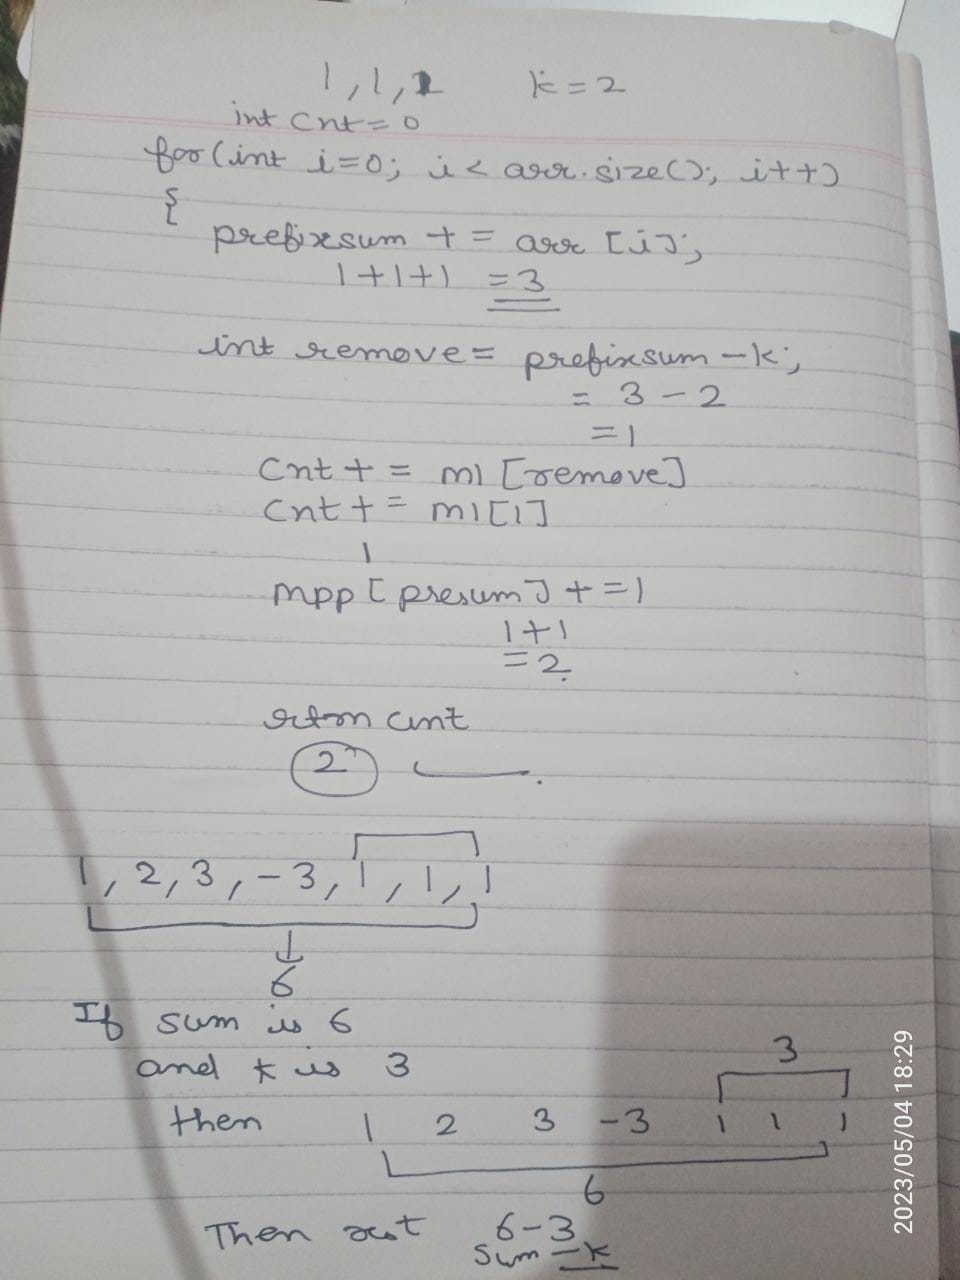 1, 1, 1 k = 2
int cnt = 0
for (int i=0; i < arr.size(); i++)
{
prefixsum += arr [i];
1+1+1 = 3
int remove = prefixsum - k;
= 3 - 2
= 1
cnt += m1 [remove]
cnt += m1[1]
1
mpp [presum] += 1
1+1
= 2
cnt
2
1, 2, 3, -3, 1, 1, 1
6
If sum is 6
and k is 3
3
then 1 2 3 -3 1 1 1
6
Then 6-3
sum - k
2023/05/04 18:29